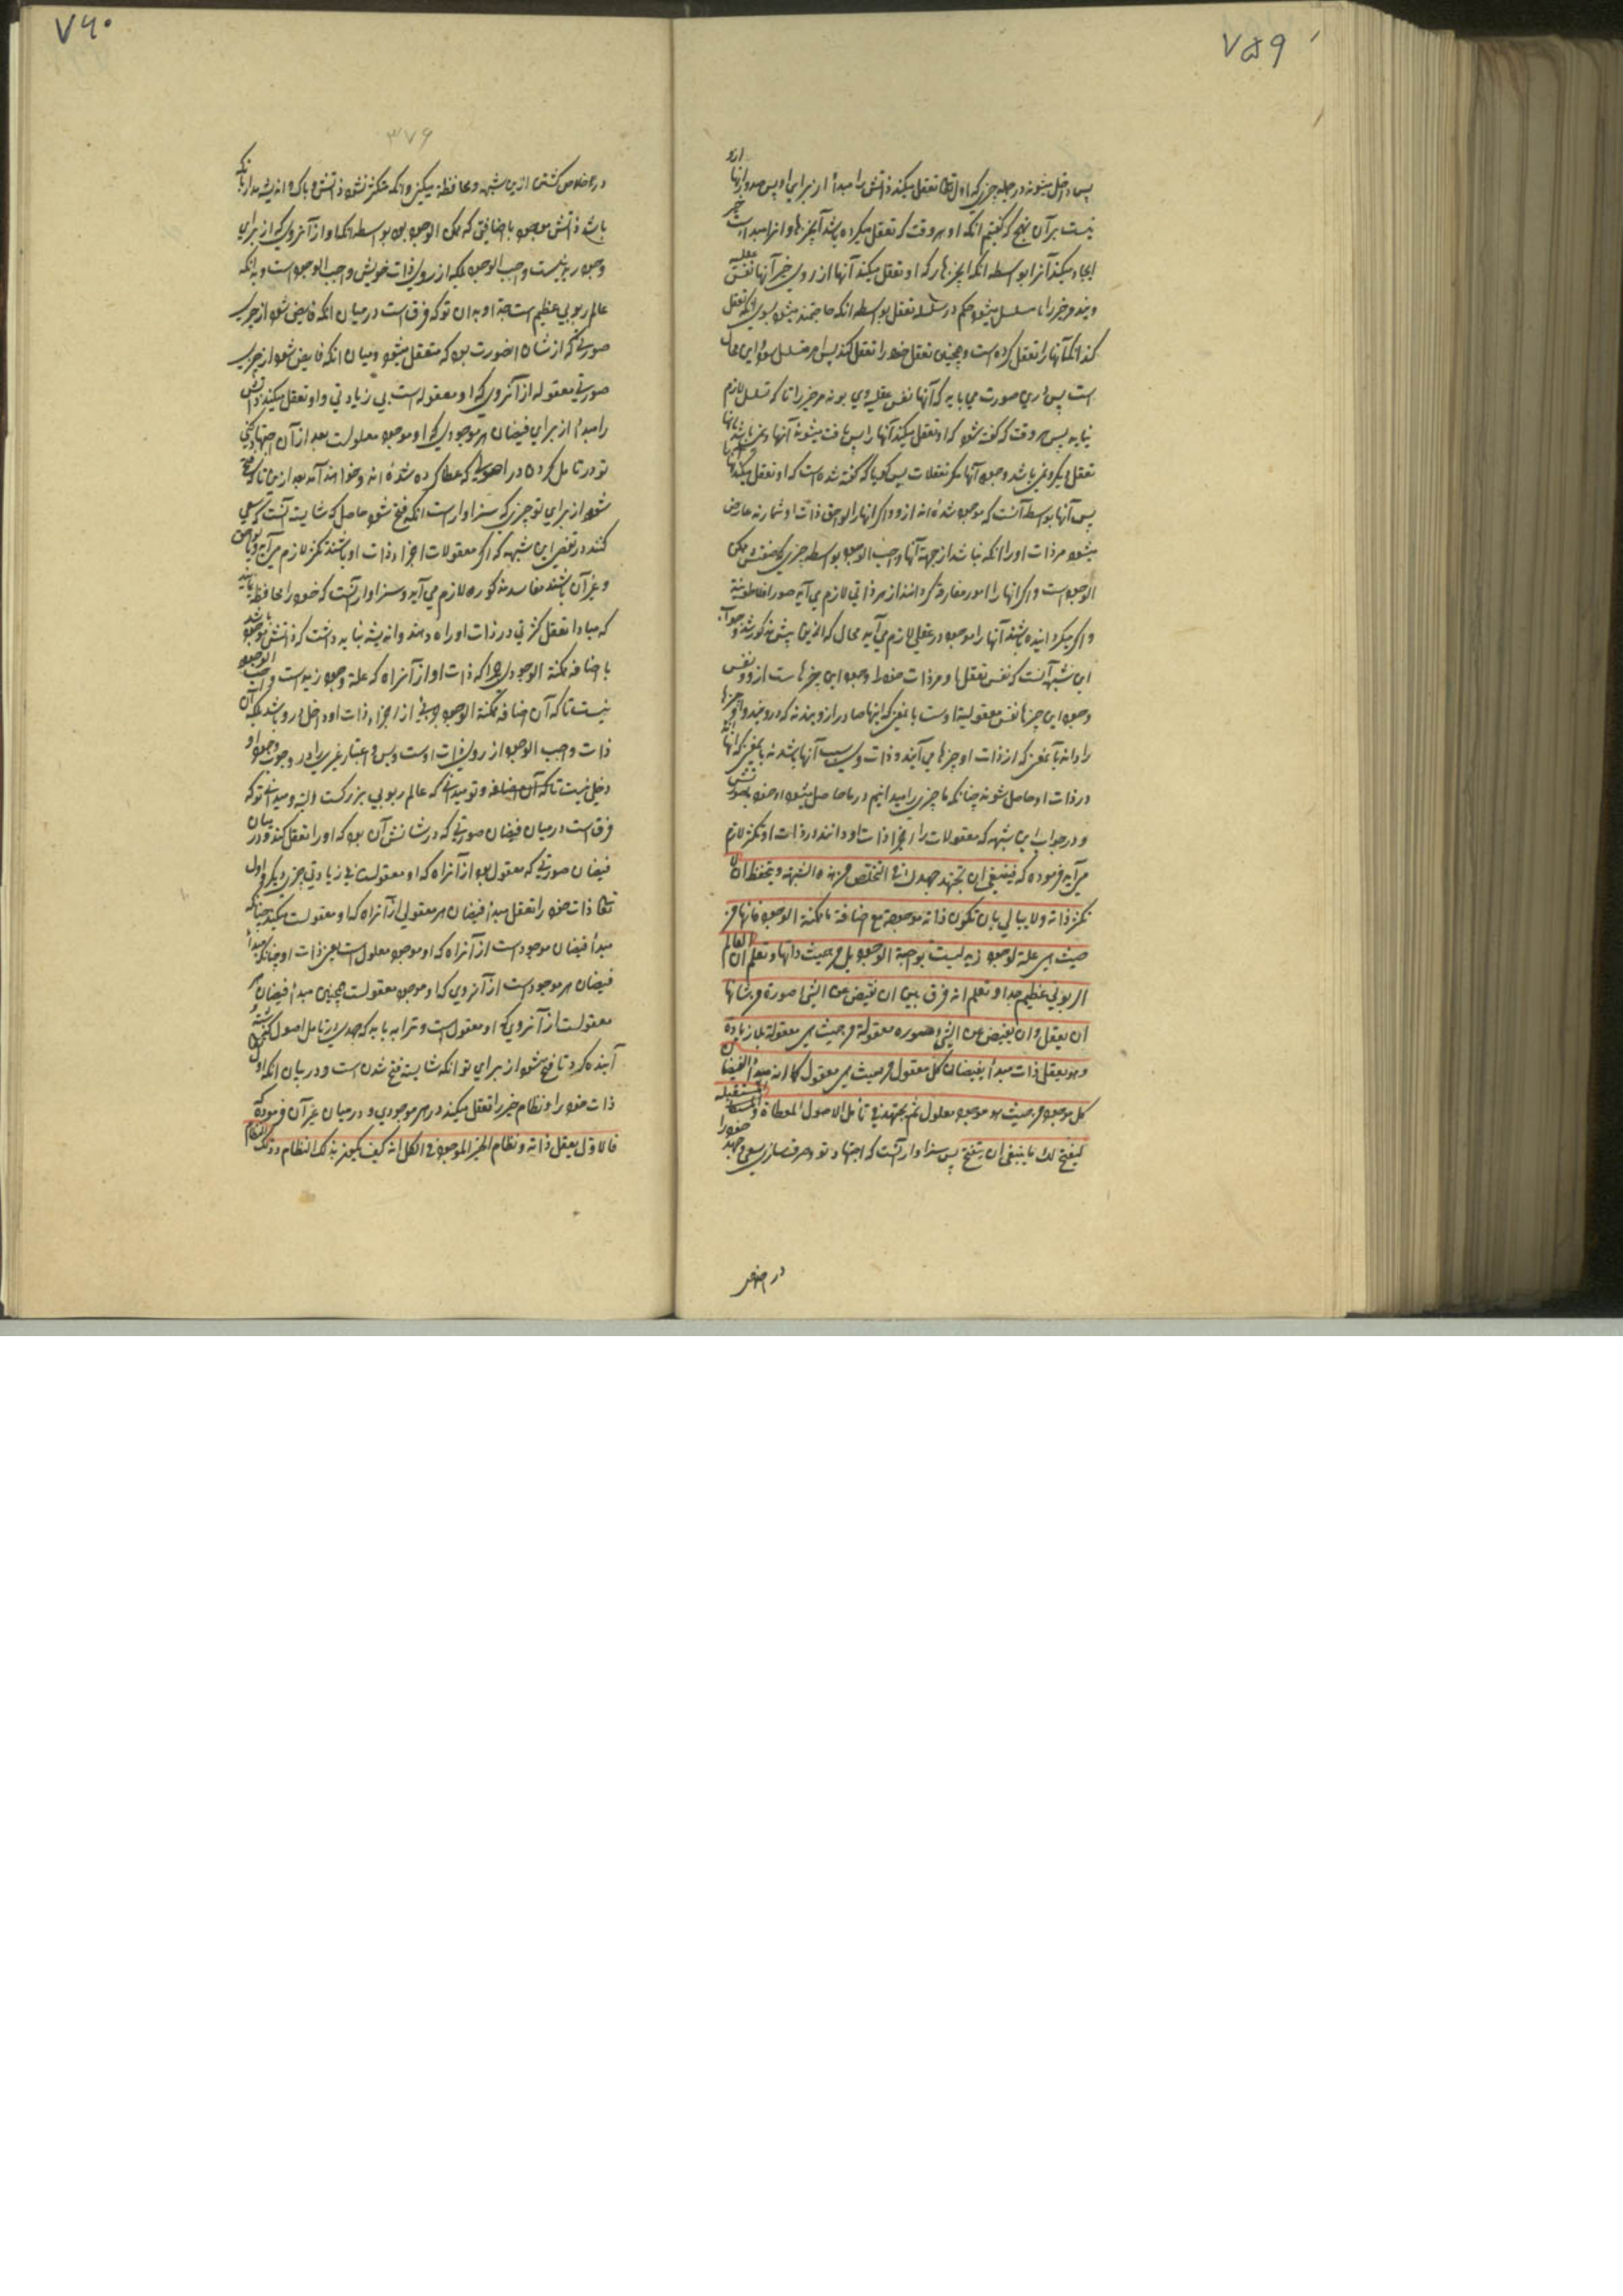 ٧٥٩
پس داخل میشوند در جمله چیزی که اول تعالی تعقل میکند ذاتش را مبدأ از برای او پس صدور آنها ازو
نیست بر آن نهج که گفتیم انکه او هر وقت که تعقل میکرده باشد آن چیزها و انها مبدا است خیر
ایجاد میکند آنرا بواسطه انکه این چیزها که او تعقل میکند آنها از روی خیر آنها نفس عقلیه
ویند و خیر را تسلسل میشود حکم در سلسله تعقل بواسطه انکه محتاج میشود بسوی انکه تعقل
کند انکه آنها را تعقل کرده است و همچنین تعقل خود را تعقل کند پس امر متسلسل شود و این محال
است پس این صورت می باید که آنها نفس عقلیه وی بوند مر خیر را تا که تسلسل لازم
نیاید پس هر وقت که گفته شود که او تعقل میکند آنها را پس یافت میشوند آنها و نمی باشد بآنها
تعقل دیگر و نمی باشد وجود آنها مگر تعقلات پس گویا که گفته شده است که او تعقل میکند
پس آنها بواسطه آنست که موجود شده اند ازو و اگر انها را لواحق ذات او شمارند عارض
میشود مر ذات او را انکه نباشد از جهة آنها واجب الوجود بواسطه چیزی که ممکن
الوجود است و اگر انها را امور مفارقه گردانند از هر ذاتی لازم می آید صور افلاطونیة
و اگر میگردانیده باشند آنها را موجود در عقلی لازم می آید محال که از پیش مذکور شد و جواب
این شبهه آنست که نفس تعقل او مر ذات خود را وجود این چیزهاست ازو و نفس
وجود این چیزها نفس معقولیة اوست باین معنی که اینها صادر ازویند نه که درویند و او چیزها
را داند بآن معنی که از ذات او چیزها می آیند و ذات وی سبب آنها باشد نه باین معنی که انها
در ذات او حاصل شوند چنانکه ما چیزی را میدانیم در ما حاصل میشود او خود بصورتش
و در جواب این شبهه که معقولات را اجزا ذات او دانند در ذات او تکثر لازم
می آید فرموده که فینبغی ان تجتهد جهدک فی التخلص من هذه الشبهة و تتحفظ ان لا
تکثر ذاته ولا یبالی بان تکون ذاته موجودة مع اضافة ما ممکنة الوجود فانها من
حیث هی علة لوجود زید لیست بواجبة الوجود بل من حیث ذاتها و تعلم ان العالم
الربوبی عظیم جدا و تعلم انه فرق بین ان تفیض عن الشئ صورة من شانها
ان یعقل و ان یفیض عن الشئ صورة معقولة من حیث هی معقولة بلا زیادة
و هو یعقل ذاته مبدأ لفیضان کل معقول من حیث هی معقول کما انه مبدأ لفیضان
کل موجود من حیث هو موجود معلول ثم تجتهد فی تأمل الاصول المعطاة و المستقبلة
لیفتح لک ما ینبغی ان یتفتح پس سزاوار آنست که اجتهاد تو و صرف سازی سعی و جهد خود را
در خلاص
٧٦٠
٣٧٩
در خلاص گشتن ازین شبهه و محافظة میکنی و انکه متکثر نشود ذاتش و باک و اندیشه مدار بانکه
باشد ذاتش موجود با اضافتی که ممکن الوجود بود بواسطه انکه او از آنروی که از برای
وجود زید نیست واجب الوجود بلکه از روی ذات خویش واجب الوجود است و بدانکه
عالم ربوبی عظیم است جدا و بدان تو که فرق است در میان انکه فایض شود از چیزی
صورتی که از شان انصورت بود که متعقل میشود و میان انکه فایض شود از چیزی
صورتی معقوله از آنروی که او معقوله است بی زیادتی و او تعقل میکند ذاتش
را مبدأ از برای فیضان هر موجودی که او موجود معلولست بعد از آن اجتهاد کنی
تو در تامل کردن در اصولی که عطا کرده شده اند و خواهند آمد بعد ازین تا که فتح
شود از برای تو چیزی که سزاوار است انکه فتح شود حاصل که شایسته آنست که سعی
کنند در تفصی این شبهه که اگر معقولات اجزاء ذات او باشند تکثر لازم می آید و یا لواحق
و غیر آن باشند مفاسد مذکوره لازم می آید و سزاوار آنست که خود را محافظه نمایند
که مبادا تعقل کثرتی در ذات او راه دهند و اندیشه نباید داشت که ذاتش موجود باشد
با اضافه ممکنة الوجود چرا که ذات او از آنراه که علة وجود زید است واجب الوجود
نیست تا که آن اضافه ممکنة الوجود جزئی از اجزاء ذات او و داخل در او باشد بلکه آن
ذات واجب الوجود از روی ذات اوست و بس و اعتبار غیری را در وجوب وجود او
دخل نیست تا که آن اضافه و تو میدانی که عالم ربوبی بزرگست البته و میدانی تو که
فرق است در میان فیضان صورتی که در شانش آن بود که او را تعقل کنند و در میان
فیضان صورتی که معقول بود از آنراه که او معقولست بی زیادتی چیزی دیگر و اول
تعالی ذات خود را تعقل مبدأ فیضان هر معقولی از آنراه که او معقولست میکند چنانکه
مبدأ فیضان موجود است از آنراه که او موجود معلول است یعنی ذات او چنانکه مبدأ
فیضان هر موجود است از آنروی که او موجود معقولست همچنین مبدأ فیضان هر
معقولست از آنروی که او معقول است و ترا باید که جهدی در تامل اصول گذشته و
آینده کرد تا فتح شود از برای تو انکه شایسته فتح شدن است و در بیان انکه اول
ذات خود را و نظام خیر را تعقل میکند در هر موجودی و در میان غیر آن فرموده که
فالاول یعقل ذاته و نظام الخیر الموجود فی الکل انه کیف یکون بذلک النظام و ذلک النظام